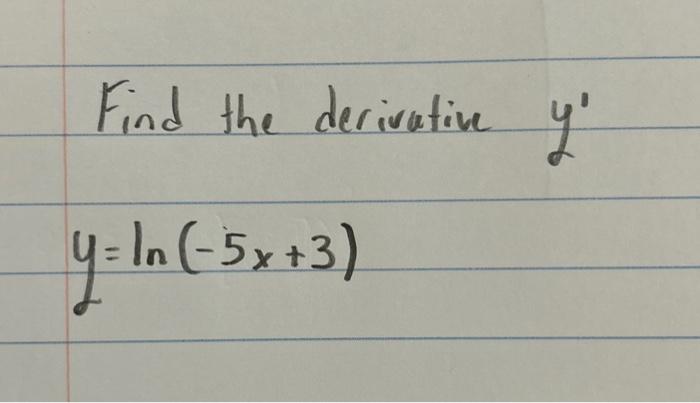 Find the derivative y'
y = ln(-5x+3)